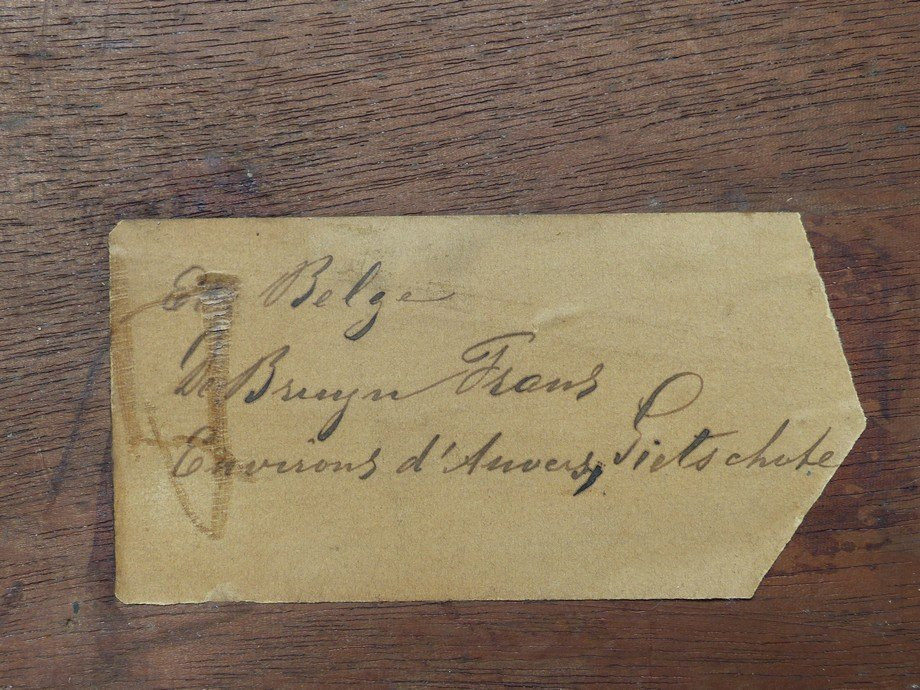 Belge
De Bruyn Frans
Environs d'Anvers, Pietschote